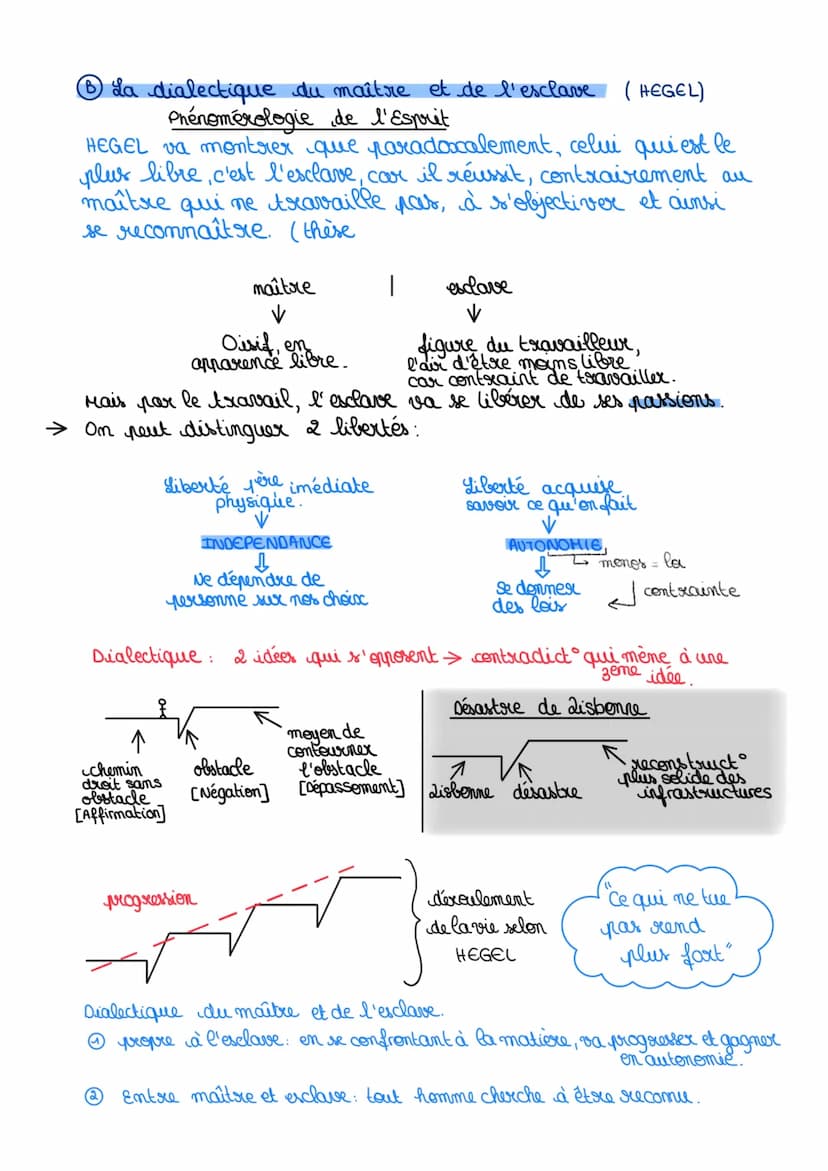 B La dialectique du maître et de l'esclave (HEGEL)
Phénomérologie de l'Esprit
HEGEL va montrer que paradoxalement, celui qui est le
plus libre, c'est l'esclave, car il réussit, contrairement au
maître qui ne travaille pas, à s'objectiver et ainsi
se reconnaître. (thèse
maître | esclave
Oisif, en
apparence libre.
figure du travailleur,
l'air d'être moins libre
car contraint de travailler.
Mais par le travail, l'esclave va se libérer de ses passions.
→ On peut distinguer 2 libertés :
Liberté 1ère imédiate
physique.
INDEPENDANCE
Ne dépendre de
personne sur nos choix
Liberté acquise
savoir ce qu'on fait
AUTONOMIE
monos = la
contrainte
se donner
des lois
Dialectique : 2 idées qui s'opposent → contradict° qui mène à une
3ème idée.
chemin
droit sans
obstacle
[Affirmation]
obstacle
[Négation]
moyen de
contourner
l'obstacle
[Dépassement]
Désastre de Lisbonne
Lisbonne
désastre
reconstruct°
plus solide des
infrastructures
progression
déroulement
de la vie selon
HEGEL
"Ce qui ne tue
pas rend
plus fort"
Dialectique du maître et de l'esclave.
1 propre à l'esclave: en se confrontant à la matière, va progresser et gagner
en autonomie.
2 Entre maître et esclave: tout homme cherche à être reconnu.